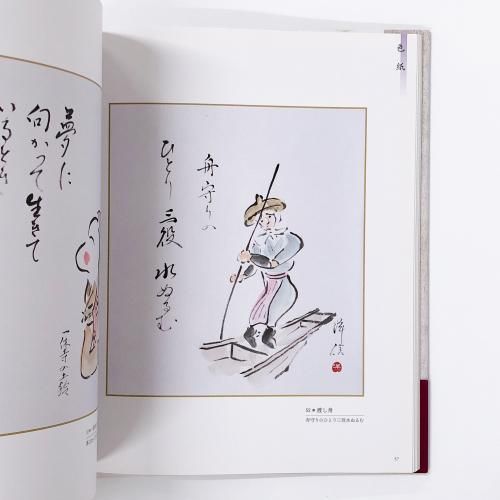 夢に
向かって生きて
色紙
舟守りの
ひとり三役 水ぬるむ
52●渡し舟
舟守りのひとり三役水ぬるむ
57